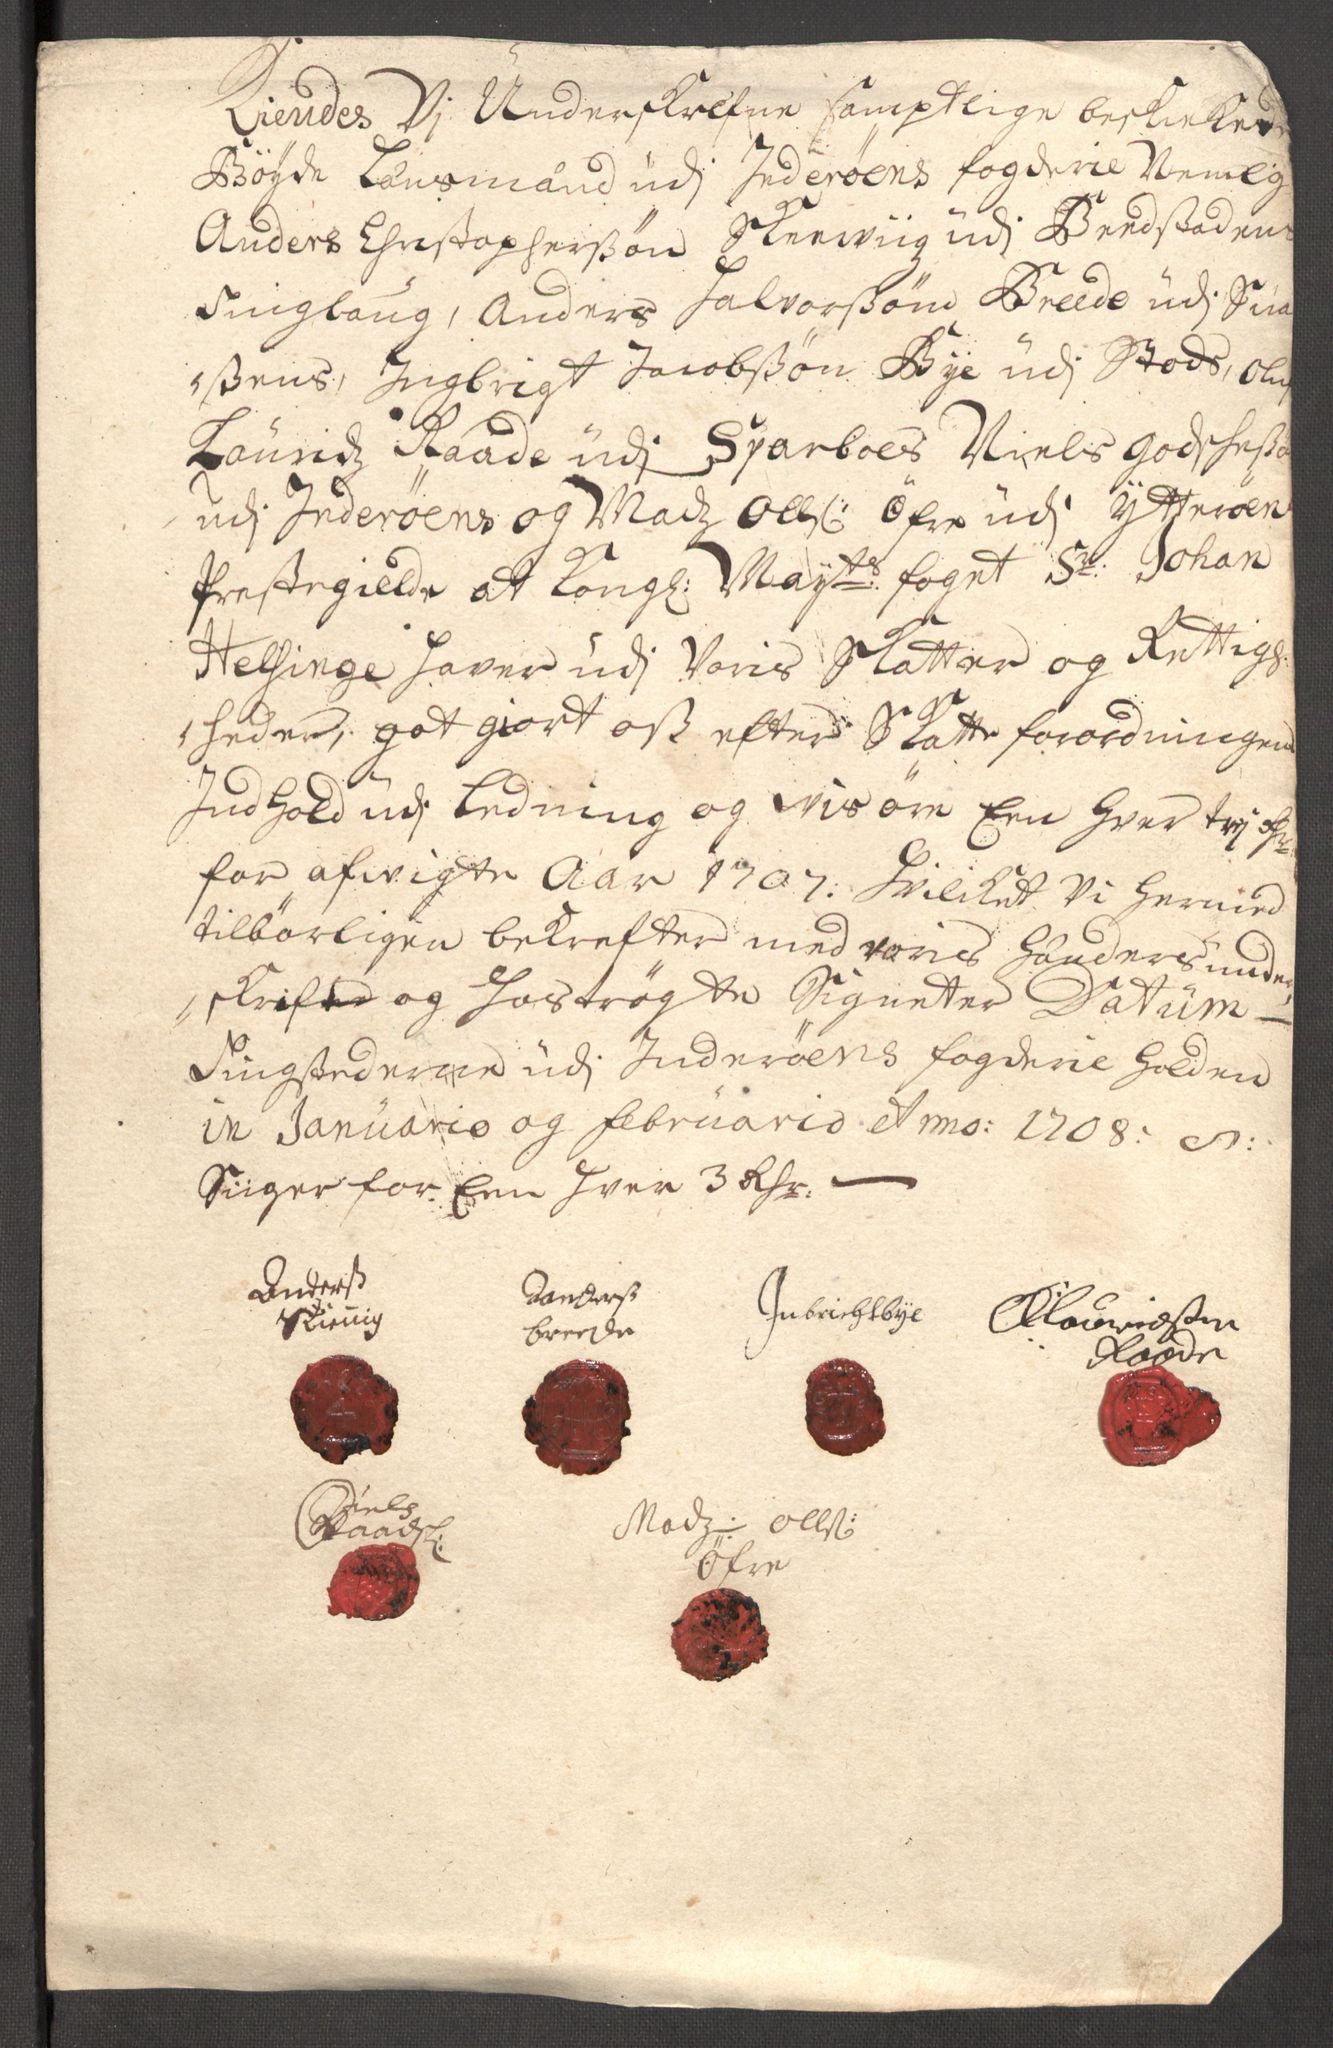 Kiendes Vj Underskrefne samptlige beskickede
Böyde Länsmänd udj Inderöens fogderie Nemlig
Anders Christophersön Skeewiig udj Beedstadens
Tinglaug, Anders Halvorsön Breede udj Snaa
sens, Ingbrigt Jacobsön Bye udj Stods, Oluf
Lauridz Raade udj Sparboes Niels
udj Inderöens og Madz Olls: Öfre udj Ytteröens
Prestegielde at Kongl: Mayts: foget Sr: Johan
Helsinge haver udj Voris Skatter og Rettig
heder, got giort oss efter Skatte forordningens
Indhold udj Ledning og visöre Een hver trj Rdr
for afvigte Aar 1707: Hvilket Vi hermed
tilbörligen bekrefter med voris händers under
skrifter og hoströgte Signeter Datum
Tingstederne udj Inderöens fogderie holden
in Januario og februario Anno: 1708:
Siiger for Een hver 3 Rdr:
Anderss
Skieuig
Anderss
breede
Inbrichtbye
Olauridssen
Raade
Niels
Madz: Olls:
Öfre